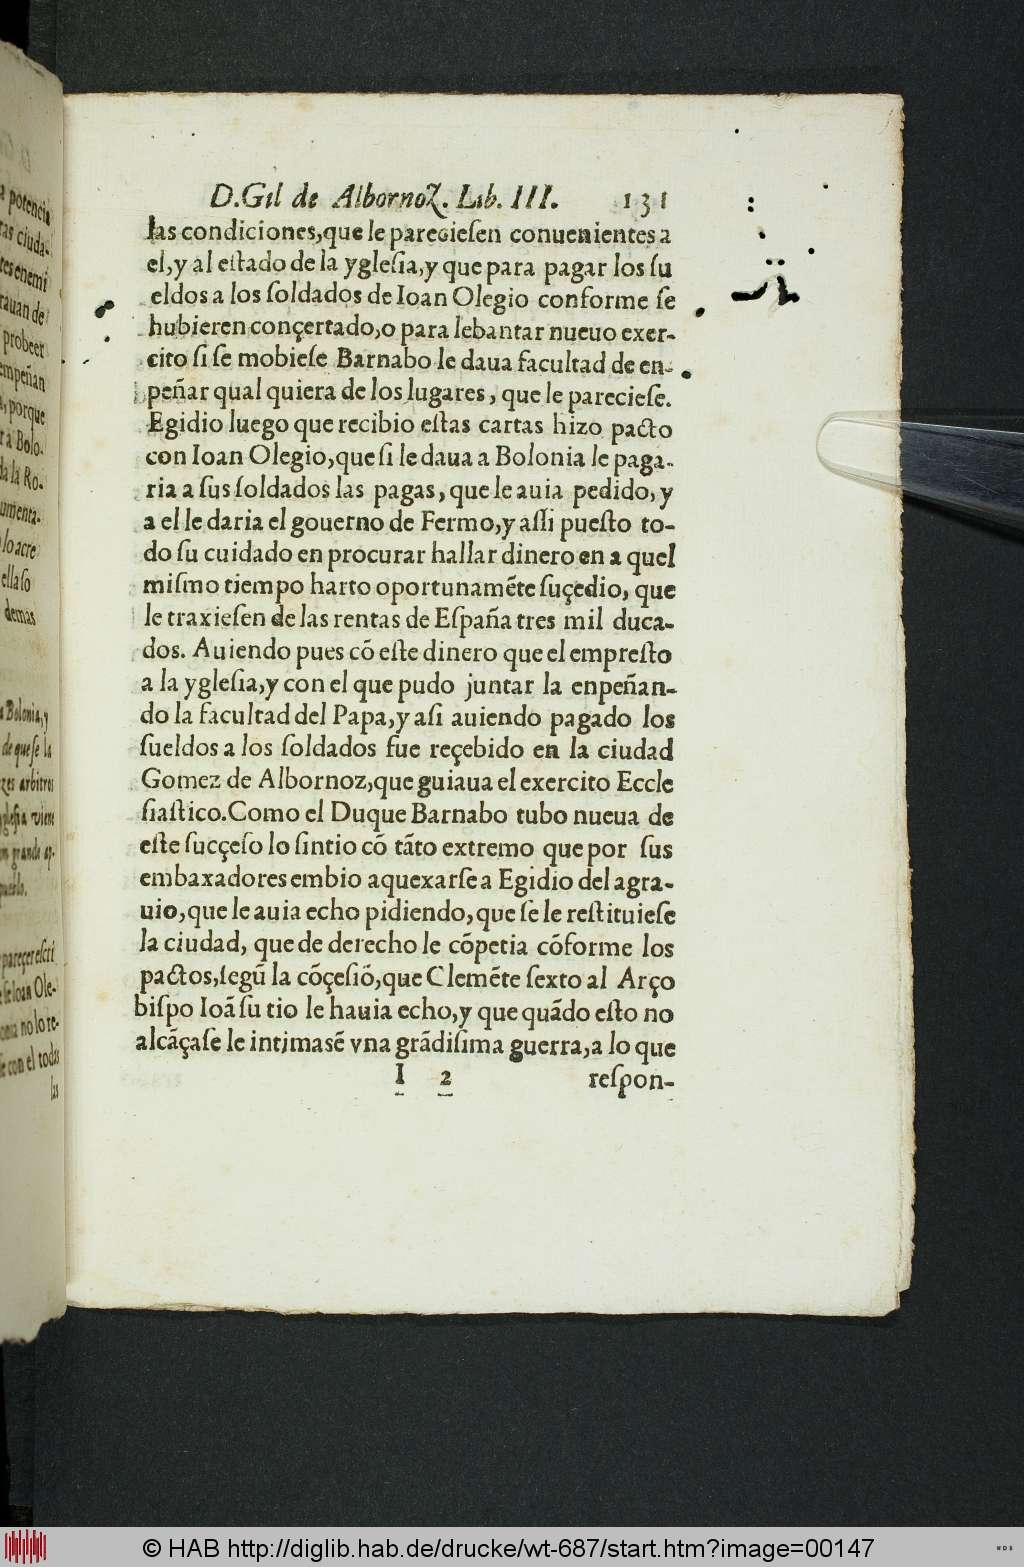 D. Gil de Albornoz. Lib. III. 131
las condiciones, que le pareciesen conuenientes a
el, y al estado de la yglesia, y que para pagar los su
eldos a los soldados de Ioan Olegio conforme se
hubieren conçertado, o para lebantar nueuo exer-
cito si se mobiese Barnabo le daua facultad de en-
peñar qual quiera de los lugares, que le pareciese.
Egidio luego que recibio estas cartas hizo pacto
con Ioan Olegio, que si le daua a Bolonia le paga-
ria a sus soldados las pagas, que le auia pedido, y
a el le daria el gouerno de Fermo, y assi puesto to-
do su cuidado en procurar hallar dinero en a quel
mismo tiempo harto oportunamẽte suçedio, que
le traxiesen de las rentas de España tres mil duca-
dos. Auiendo pues cõ este dinero que el empresto
a la yglesia, y con el que pudo juntar la enpeñan-
do la facultad del Papa, y asi auiendo pagado los
sueldos a los soldados fue reçebido en la ciudad
Gomez de Albornoz, que guiaua el exercito Eccle
siastico. Como el Duque Barnabo tubo nueua de
este sucçeso lo sintio cõ tãto extremo que por sus
embaxadores embio aquexarse a Egidio del agra-
uio, que le auia echo pidiendo, que se le restituiese
la ciudad, que de derecho le cõpetia cõforme los
pactos, segũ la cõçesiõ, que Clemẽte sexto al Arço
bispo Ioã su tio le hauia echo, y que quãdo esto no
alcãçase le intimasẽ vna grãdisima guerra, a lo que
I 2 respon-
potencia
ciuda-
enemi
rauan de
probeer
empeñan
, porque
Bolo-
la Ro-
lo acre
ella so
demas
Bolonia, y
de que se la
arbitros
viene
grande
pareçer escri
Ioan Ole-
no lo re-
con el todas
las
© HAB http://diglib.hab.de/drucke/wt-687/start.htm?image=00147